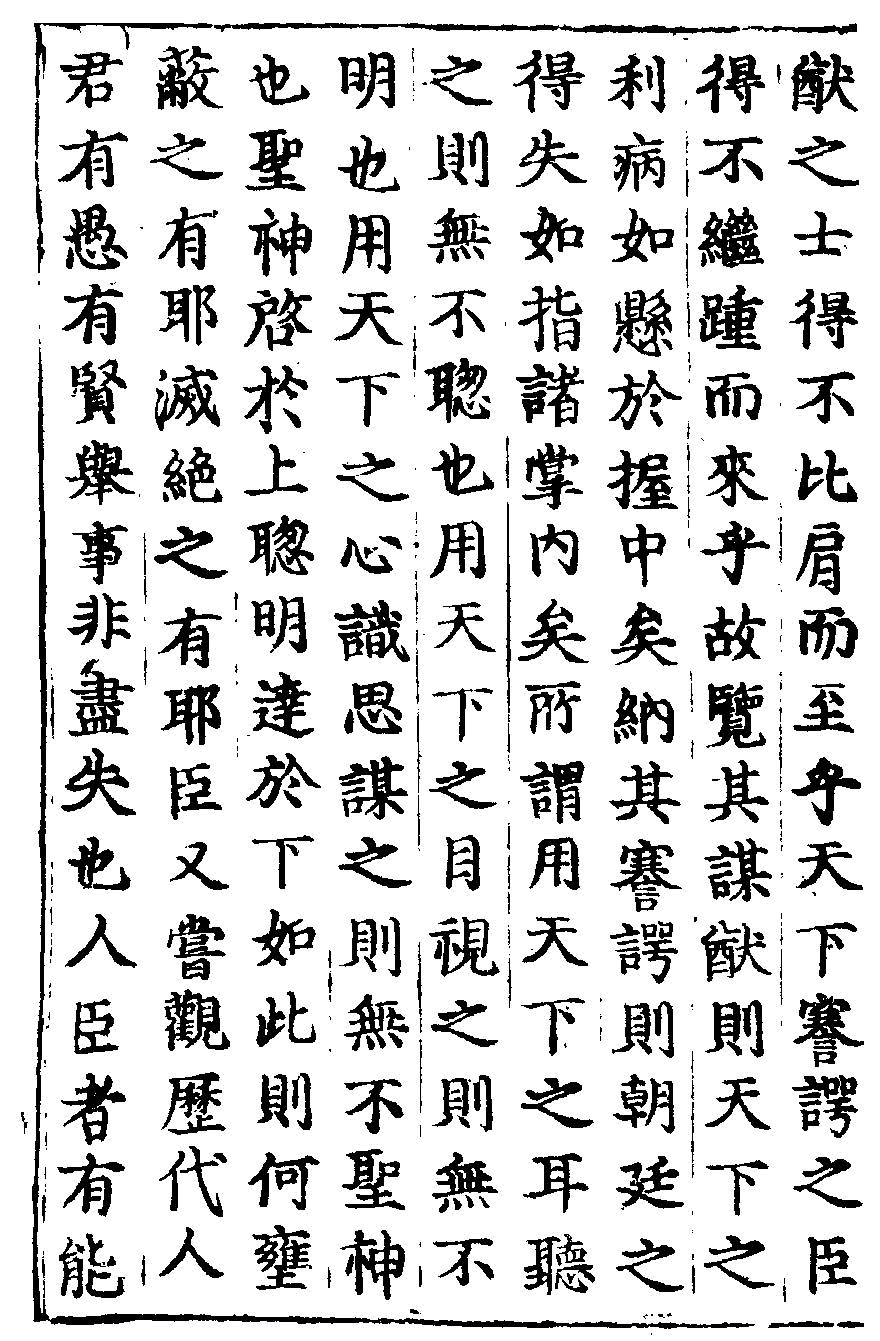 猷之士得不比肩而至乎天下謇諤之臣
得不繼踵而來乎故覽其謀猷則天下之
利病如懸於握中矣納其謇諤則朝廷之
得失如指諸掌內矣所謂用天下之耳聽
之則無不聦也用天下之目視之則無不
明也用天下之心識思謀之則無不聖神
也聖神啓於上聦明達於下如此則何壅
蔽之有耶滅絕之有耶臣又嘗觀歷代人
君有愚有賢舉事非盡失也人臣者有能